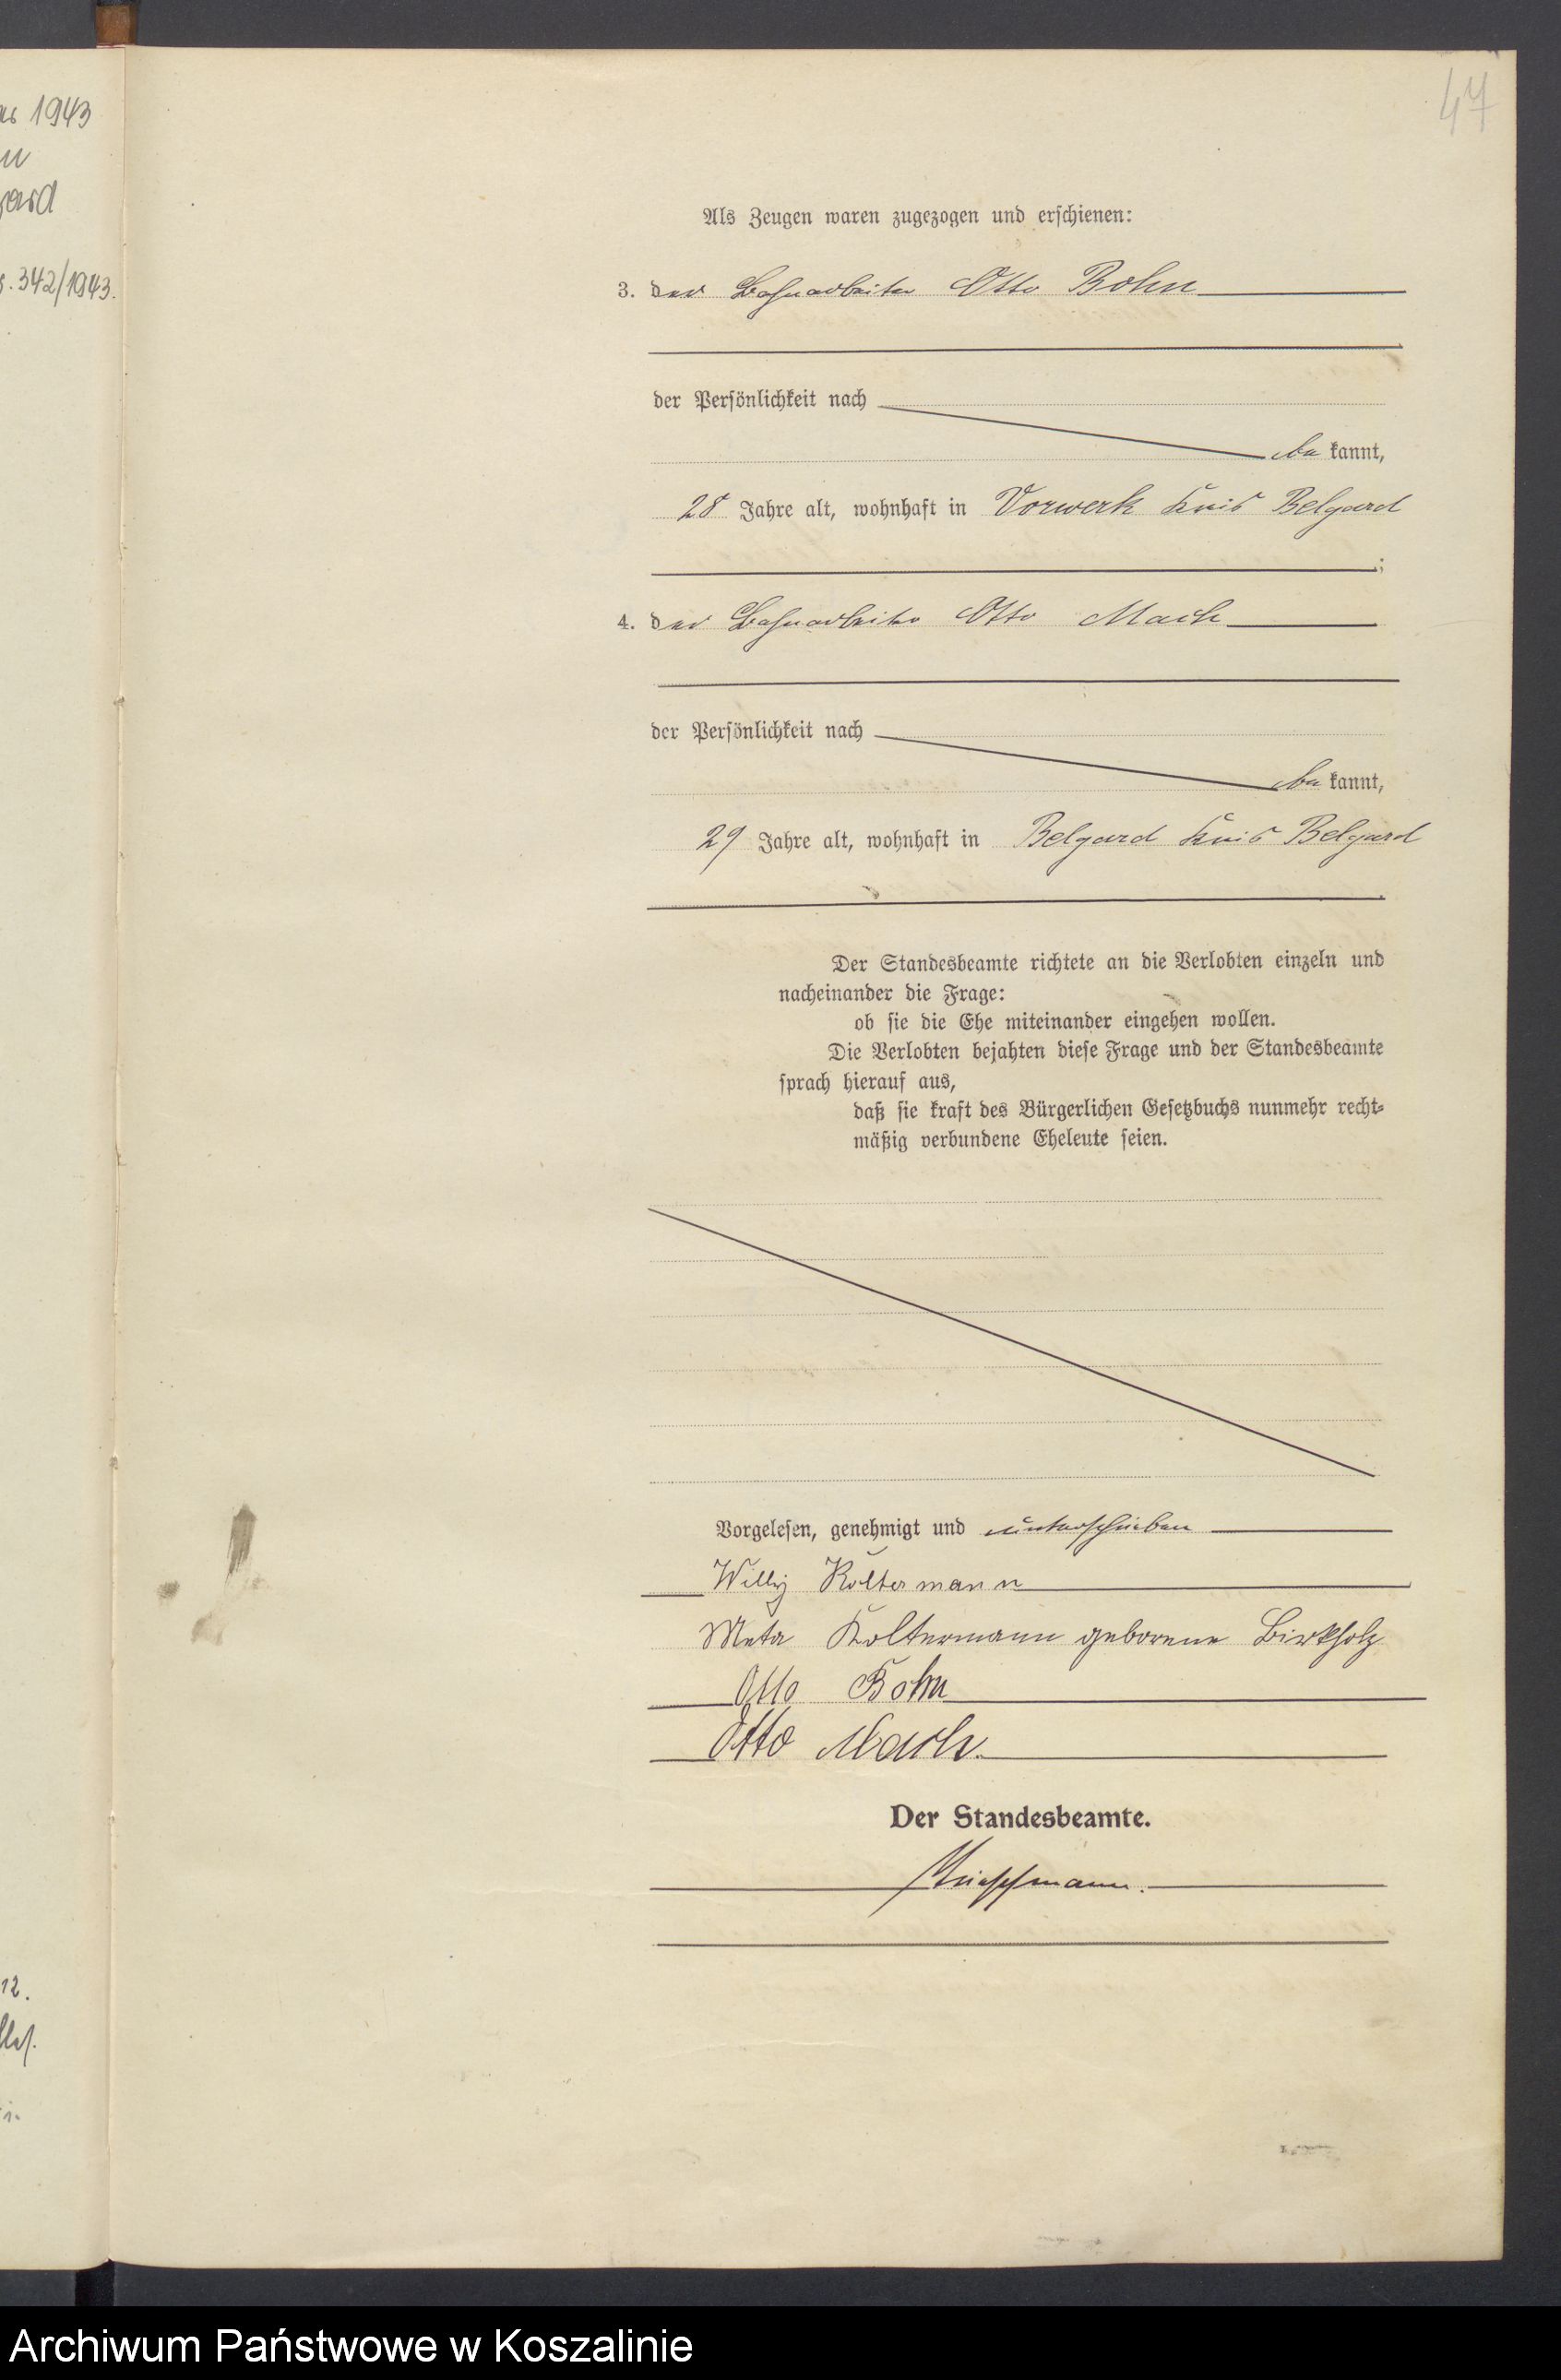 1943
342/1943.
12.
47
Als Zeugen waren zugezogen und erschienen:
3. der Bahnarbeiter Otto Bohn
der Persönlichkeit nach
be kannt,
28 Jahre alt, wohnhaft in Vorwerk Kreis Belgard
;
4. der Bahnarbeiter Otto Mach
der Persönlichkeit nach
be kannt,
29 Jahre alt, wohnhaft in Belgard Kreis Belgard
.
Der Standesbeamte richtete an die Verlobten einzeln und
nacheinander die Frage:
ob sie die Ehe miteinander eingehen wollen.
Die Verlobten bejahten diese Frage und der Standesbeamte
sprach hierauf aus,
daß sie kraft des Bürgerlichen Gesetzbuchs nunmehr recht-
mäßig verbundene Eheleute seien.
Vorgelesen, genehmigt und unterschrieben
Willy Koltermann
Meta Koltermann geborene Birkholz
Otto Bohn
Otto Mach.
Der Standesbeamte.
Archiwum Państwowe w Koszalinie